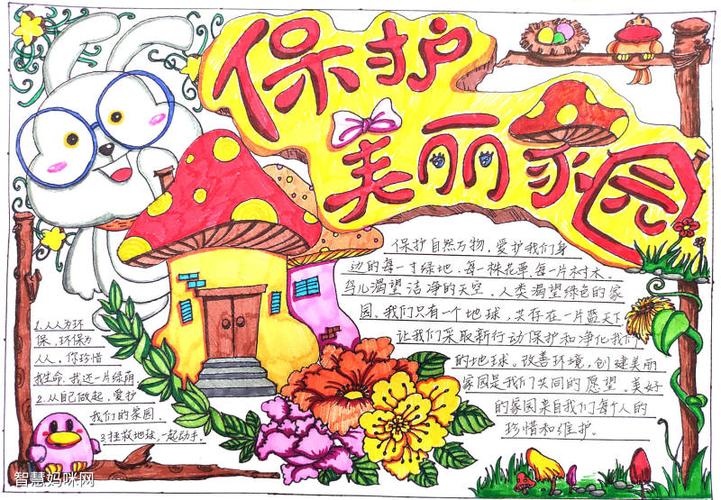 保护
美丽家园
保护自然万物，爱护我们身
边的每一寸绿地，每一株花草每一片树木。
鸟儿渴望洁净的天空，人类渴望绿色的家
园，我们只有一个地球，共存在一片蓝天下
让我们采取新行动保护和净化我们
的地球。改善环境，创建美丽
家园是我们共同的愿望，美好
的家园来自我们每个人的
珍惜和维护。
1.人人为环
保，环保为
人人，你珍惜
我生命，我还一片绿荫
2.从自己做起，爱护
我们的家园。
3.拯救地球，一起动手。
智慧妈咪网